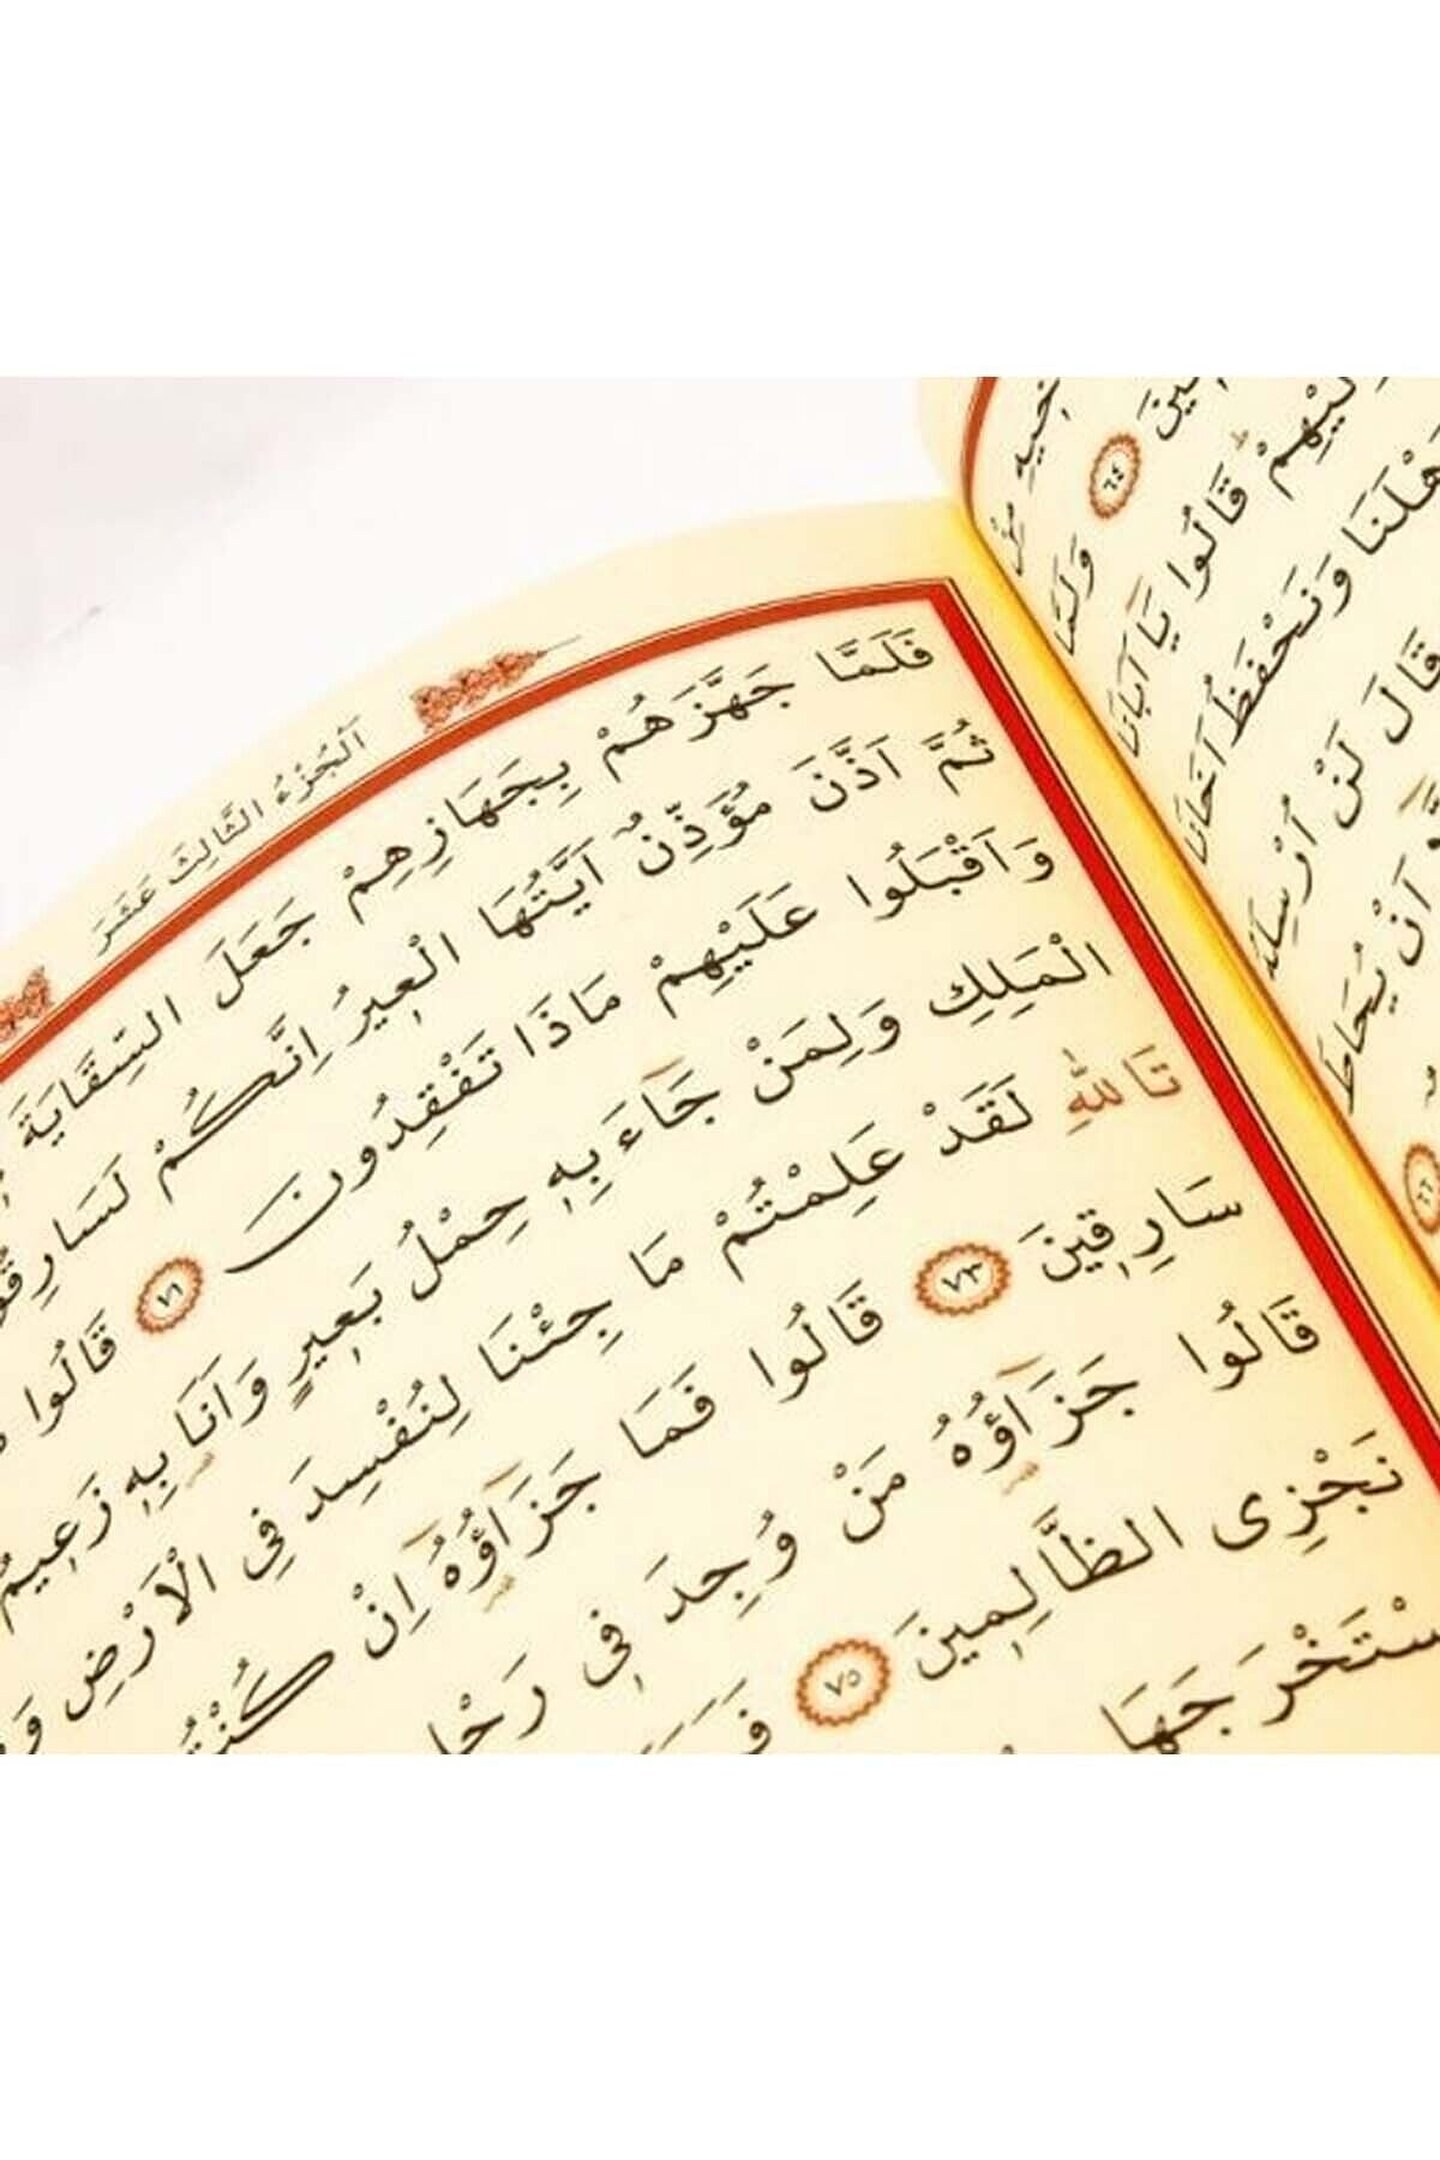 اَلْجُزْءُ الثَّالِثَ عَشَرَ
فَلَمَّا جَهَّزَهُمْ بِجَهَازِهِمْ جَعَلَ السِّقَايَةَ
ثُمَّ اَذَّنَ مُؤَذِّنٌ اَيَّتُهَا الْعِيرُ اِنَّكُمْ لَسَارِقُو
وَاَقْبَلُوا عَلَيْهِمْ مَاذَا تَفْقِدُونَ ﴿٧١﴾ قَالُوا
الْمَلِكِ وَلِمَنْ جَاءَ بِهِ حِمْلُ بَعِيرٍ وَاَنَا بِهِ زَعِيمٌ
تَاللّٰهِ لَقَدْ عَلِمْتُمْ مَا جِئْنَا لِنُفْسِدَ فِي الْاَرْضِ وَ
سَارِقِينَ ﴿٧٣﴾ قَالُوا فَمَا جَزَاؤُهُ اِنْ كُنْتُ
قَالُوا جَزَاؤُهُ مَنْ وُجِدَ فِي رَحْلِ
نَجْزِي الظَّالِمِينَ ﴿٧٥﴾ فَ
سْتَخْرَجَهَا
اَخِيهِ
﴿٦٤﴾ وَلَمَّا
لَيْهِمْ قَالُوا يَا اَبَانَا
هْلَنَا وَنَحْفَظُ اَخَانَا
قَالَ لَنْ اُرْسِلَهُ
اَنْ يُحَاطَ
﴿٦٦﴾